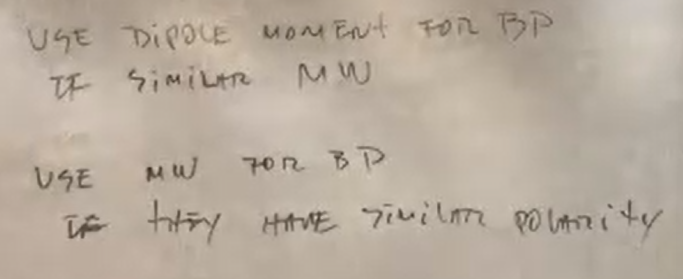 USE DIPOLE MOMENT FOR BP
IF SIMILAR MW
USE MW FOR BP
IF THEY HAVE SIMILAR POLARITY